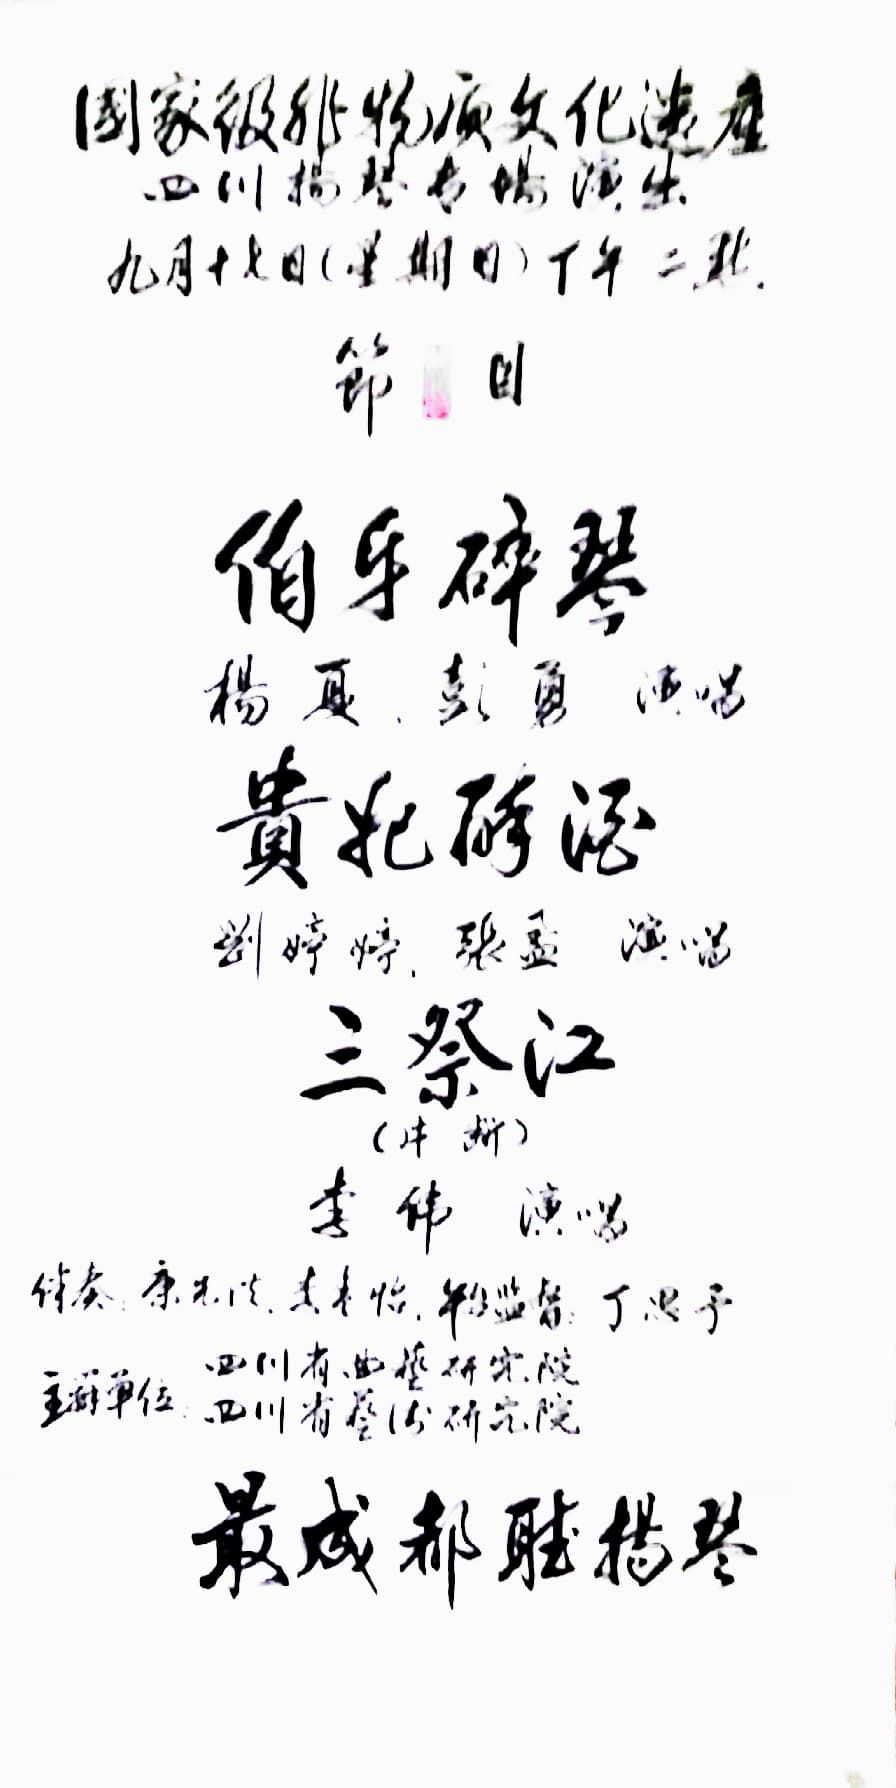 國家级非物质文化遗産
四川揚琴专場演出
九月十七日(星期日)下午二點.
節 目
伯牙碎琴
楊夏、彭勇 演唱
貴妃醉酒
劉婷婷、張孟 演唱
三祭江
(片斷)
李伟 演唱
伴奏:康先洪、怡、监督:丁忠予
主辦單位:
四川省曲藝研究院
四川省藝術研究院
最成都聽揚琴